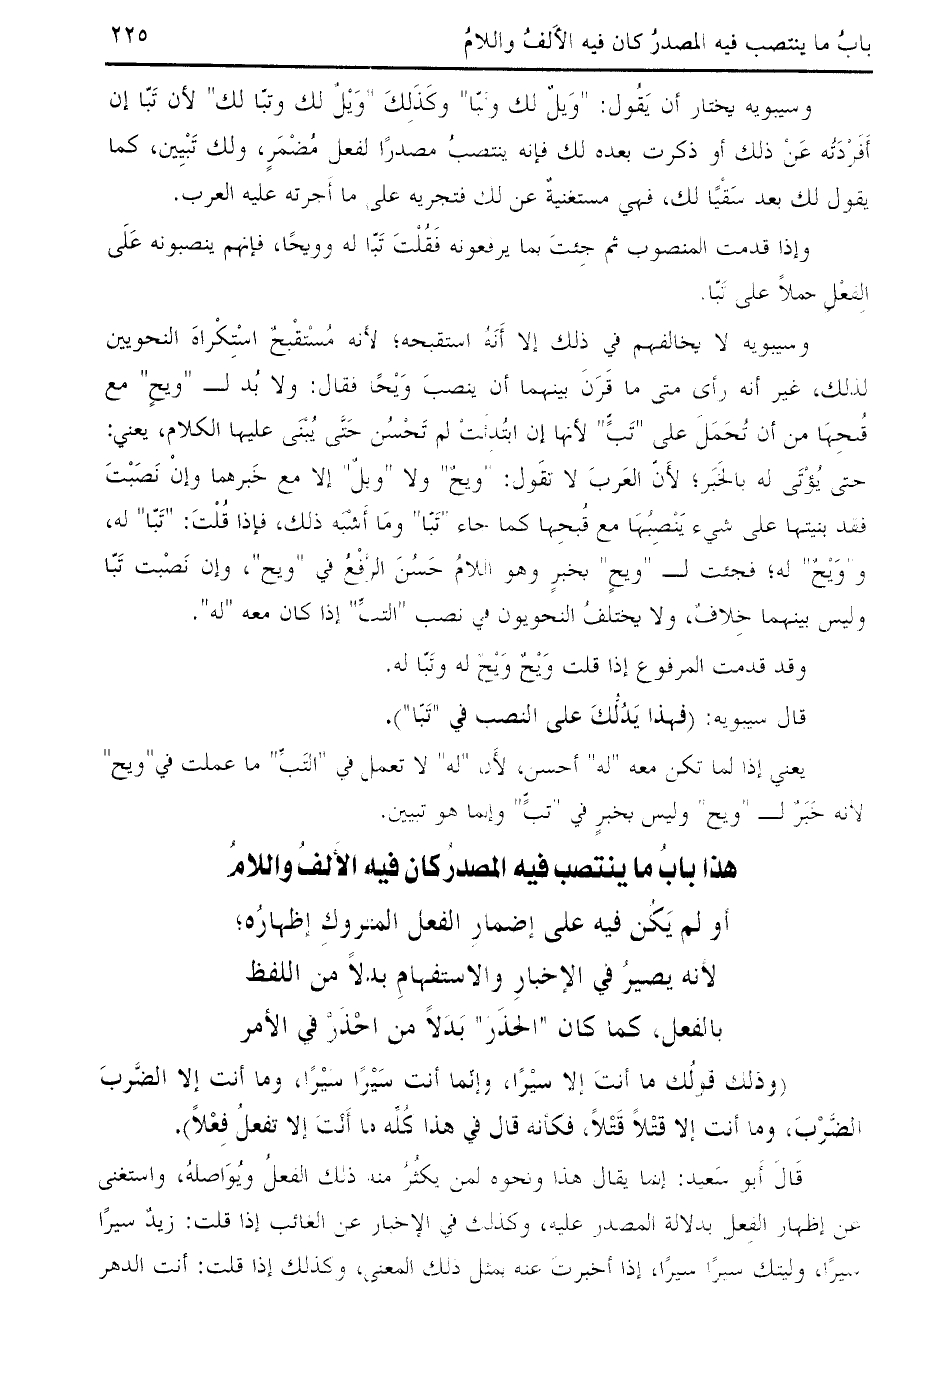 باب ما ينتصب فيه المصدر كان فيه الألف واللام ٢٢٥
وسيبويه يختار أن يَقُول: "وَيلٌ لك وتبًّا" وكَذَلِكَ "وَيْلٌ لك وتبًّا لك" لأن تَبًّا إن
أَفَرْدَتُه عَنْ ذلك أو ذكرت بعده لك فإنه ينتصبُ مصدرًا لفعلٍ مُضْمَرٍ، ولك تَبْيِين، كما
يقول لك بعد سَقْيًا لك، فهي مستغنيةٌ عن لك فتجريه على ما أجرته عليه العرب.
وإذا قدمت المنصوب ثم جئتَ بما يرفعونه فَقُلْتَ تَبًّا له وويحًا، فإنهم ينصبونه عَلَى
الفِعْلِ حملاً على تَبًّا.
وسيبويه لا يخالفهم في ذلك إلا أَنَهُ استقبحه؛ لأنه مُسْتَقْبِحٌ اسْتِكْراهَ النحويين
لذلك، غير أنه رأى متى ما قَرَنَ بينهما أن ينصبَ وَيْحًا فقال: ولا بُد لـــ "ويحٍ" مع
قُبحِهَا من أن تُحَمَلَ على "تَبٍّ" لأنها إن ابتُدِأتْ لم تَحْسُن حَتَّى يُبْنَى عليها الكلام، يعني:
حتى يُؤْتَى له بالخَبَر؛ لأنّ العَربَ لا تقول: "ويحٌ" ولا "ويلٌ" إلا مع خَبرهما وإنْ نَصَبْتَ
فقد بنيتها على شيء يَنْصِبُهَا مع قُبحها كما جاء "تَبًّا" ومَا أَشْبَه ذلك، فإذا قُلْتَ: "تَبًّا" له،
و"وَيْحٌ" له؛ فجئت لـــ "ويحٍ" بخبرٍ وهو اللامُ حَسُنَ الرفْعُ في "ويح"، وإن نَصْبت تَبًّا
وليس بينهما خِلافٌ، ولا يختلفُ النحويون في نصب "التبِّ" إذا كان معه "له".
وقد قدمت المرفوع إذا قلت وَيْحٌ وَيْحٌ له وتَبًّا له.
قال سيبويه: (فهذا يَدُلُّكَ على النصب في "تَبًّا").
يعني إذا لما تكن معه "له" أحسن، لأن "له" لا تعمل في "التَبِّ" ما عملت في"ويح"
لأنه خَبَرٌ لـــ "ويح" وليس بخبرٍ في "تبٍّ" وإنما هو تبيين.
هذا بابُ ما ينتصب فيه المصدرُ كان فيه الألفُ واللامُ
أو لم يَكُن فيه على إضمارِ الفعل المتروكِ إظهارُه؛
لأنه يصيرُ في الإخبارِ والاستفهامِ بدلاً من اللفظ
بالفعل، كما كان "الحَذَرَ" بَدَلاً من احْذَرْ في الأمر
(وذلك قولُك ما أنتَ إلا سيْرًا، وإنّما أنت سَيْرًا سيْرًا، وما أنت إلا الضَّربَ
الضَّرْبَ، وما أنت إلا قتْلاً قَتْلاً، فكأنه قال في هذا كُلِّه ما أَنْتَ إلا تفعلُ فِعْلاً).
قَالَ أَبو سَعيد: إنما يقال هذا ونحوه لمن يكثُرُ منه ذلك الفعلُ ويُوَاصلهُ، واستغنى
عن إظهار الفعل بدلالة المصدر عليه، وكذلك في الإخبار عن الغائب إذا قلت: زيدٌ سيرًا
سيرًا، وليتك سيرًا سيرًا، إذا أخبرتَ عنه بمثل ذلك المعنى، وكذلك إذا قلت: أنت الدهر